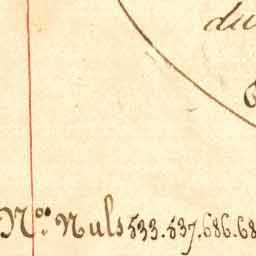 du
N.ºˢ Nuls 533.537.686.68